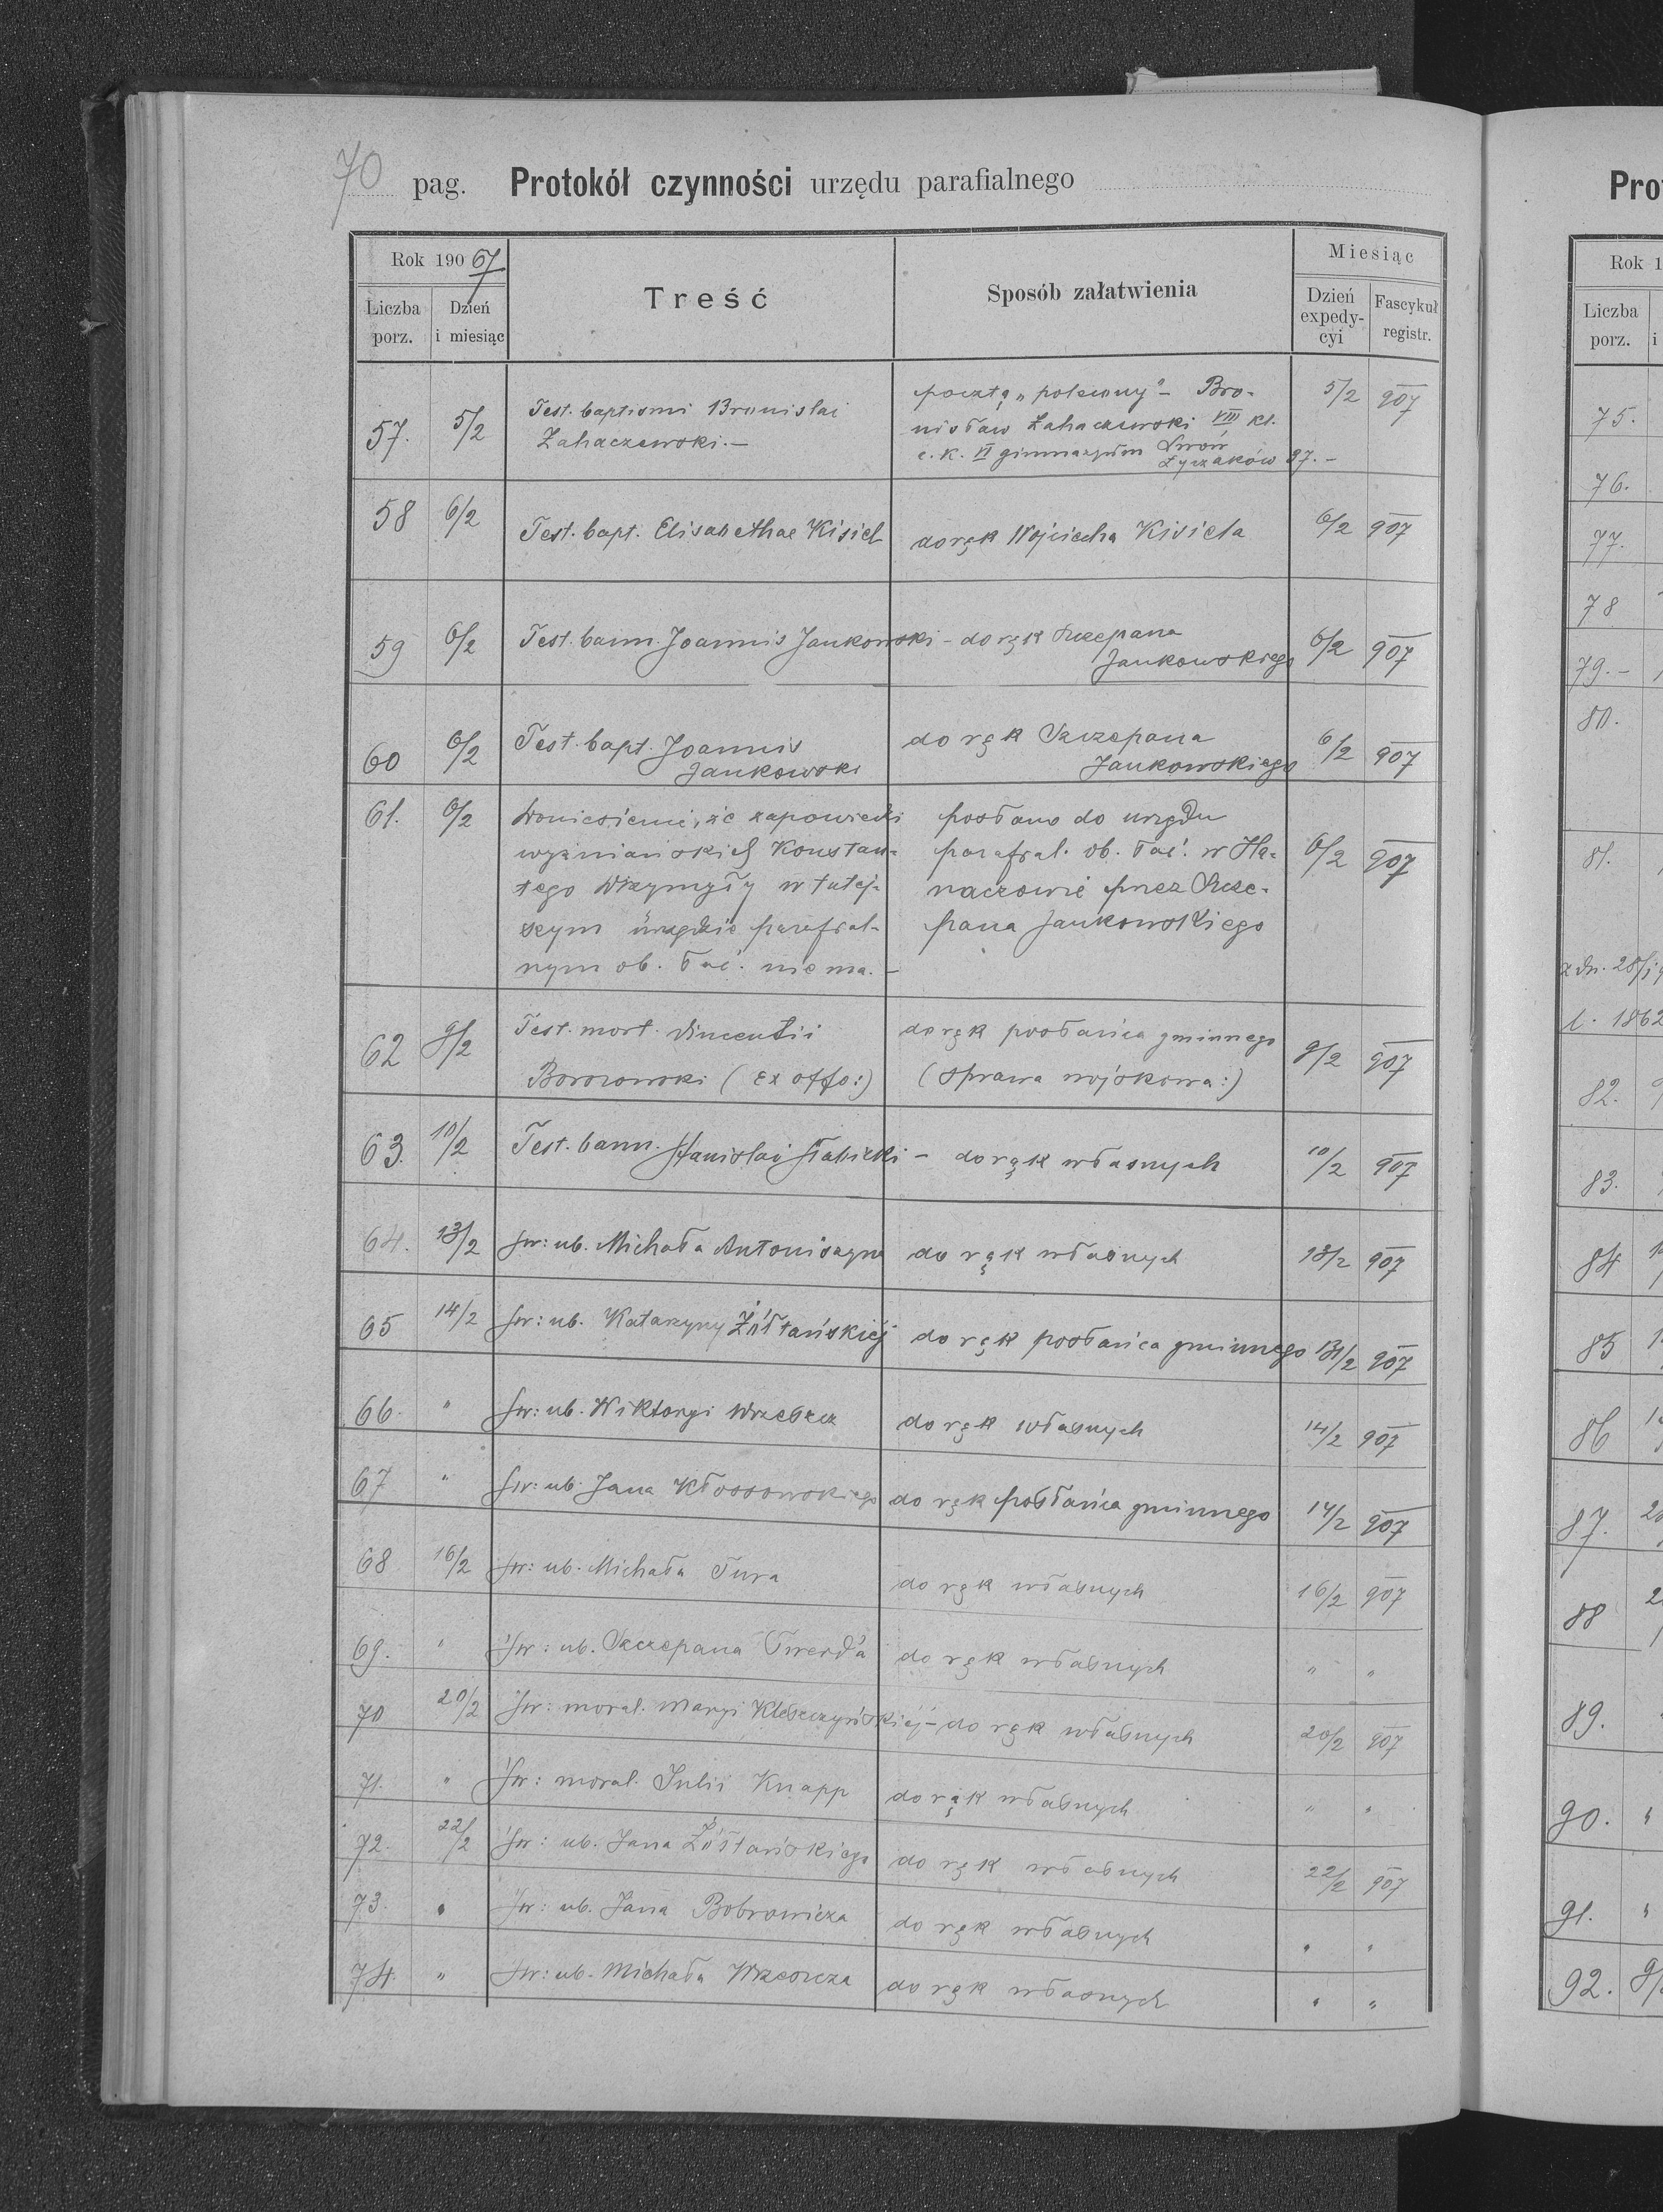 70 pag. Protokół czynności urzędu parafialnego
Rok 1907
Liczba porz.
Dzień i miesiąc
Treść
Sposób załatwienia
Miesiąc
Dzień expedy-cyi
Fascykuł registr.
57. 5/2 Test. baptismi Bronislai
Zahaczewski. —
pocztą „polecony" — Bro-
nisław Zahaczewski VIII kl.
c. k. VI gimnazyum Lwów
Łyczaków 87. —
5/2 907
58 6/2 Test. bapt. Elisabethae Kisiel do rąk Wojciecha Kisiela 6/2 907
59 6/2 Test. bann. Joannis Jankowski – do rąk Szczepana
Jankowskiego 6/2 907
60 6/2 Test. bapt. Joannis
Jankowski
do rąk Szczepana
Jankowskiego
6/2 907
61. 6/2 Doniesienie, że zapowiedzi
wyżniańskich Konstan-
tego w tutej-
szym urzędzie parafial-
nym ob. łać. nie ma. —
posłano do urzędu
parafial. ob. łać. w Ha-
naczowie przez Szcze-
pana Jankowskiego
6/2 907
62 9/2 Test. mort. Vincentii
Borozowski (ex offo:)
do rąk posłańca gminnego
(sprawa wojskowa:)
9/2 907
63. 10/2 Test. bann. Stanislai – do rąk własnych 10/2 907
64. 13/2 św: ub. Michała do rąk własnych 13/2 907
65 14/2 św: ub. Katarzyny Żółtańskiej do rąk posłańca gminnego /2 907
66. " św: ub. Wiktoryi Wrzeszcz do rąk własnych 14/2 907
67 " św: ub. Jana Kłossowskiego do rąk posłańca gminnego 14/2 907
68 16/2 św: ub. Michała Tura do rąk własnych 16/2 907
69. " św: ub. Szczepana do rąk własnych " "
70 20/2 św: moral. Maryi Kleszczyńskiej – do rąk własnych 20/2 907
71. " św: moral. Julii Knapp do rąk własnych " "
72. 22/2 św: ub. Jana Żółtańskiego do rąk własnych 22/2 907
73. " św: ub. Jana Bobrowicza do rąk własnych " "
74. " św: ub. Michała Wrzeszcza do rąk własnych " "
Pro
Rok 1
Liczba porz.
i
75.
76.
77.
78
79. –
80.
81.
z dn. 28/1
l. 1862
82.
83.
84
85
86
87.
88
89.
90. "
91. "
92.